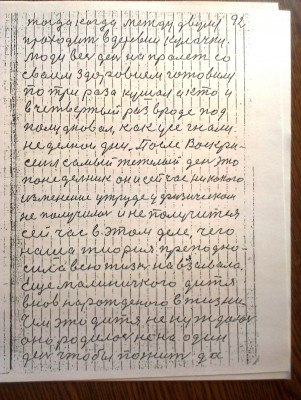 тогда когда между двум 92
проходит в деревни кулачки.
люди вес ден на пролет со
своим здоровием готовили
по три раза кушал а кто и
в четвертый раз вроде под
полудновал, как уже гнали
неделной ден, После Воскри-
сеня самый тежолый ден это
понеделник они сейчас никакого
изменение у труде у физическом
не получилос и не получится
сейчас в этом деле, чего
наша тиория преподно-
сила всю жизн на взывала,
еще маленичкого дитя
вновь нарожденого в жизни
чем это дитя не нуждалос
оно родилос не на один
ден чтобы пожит да